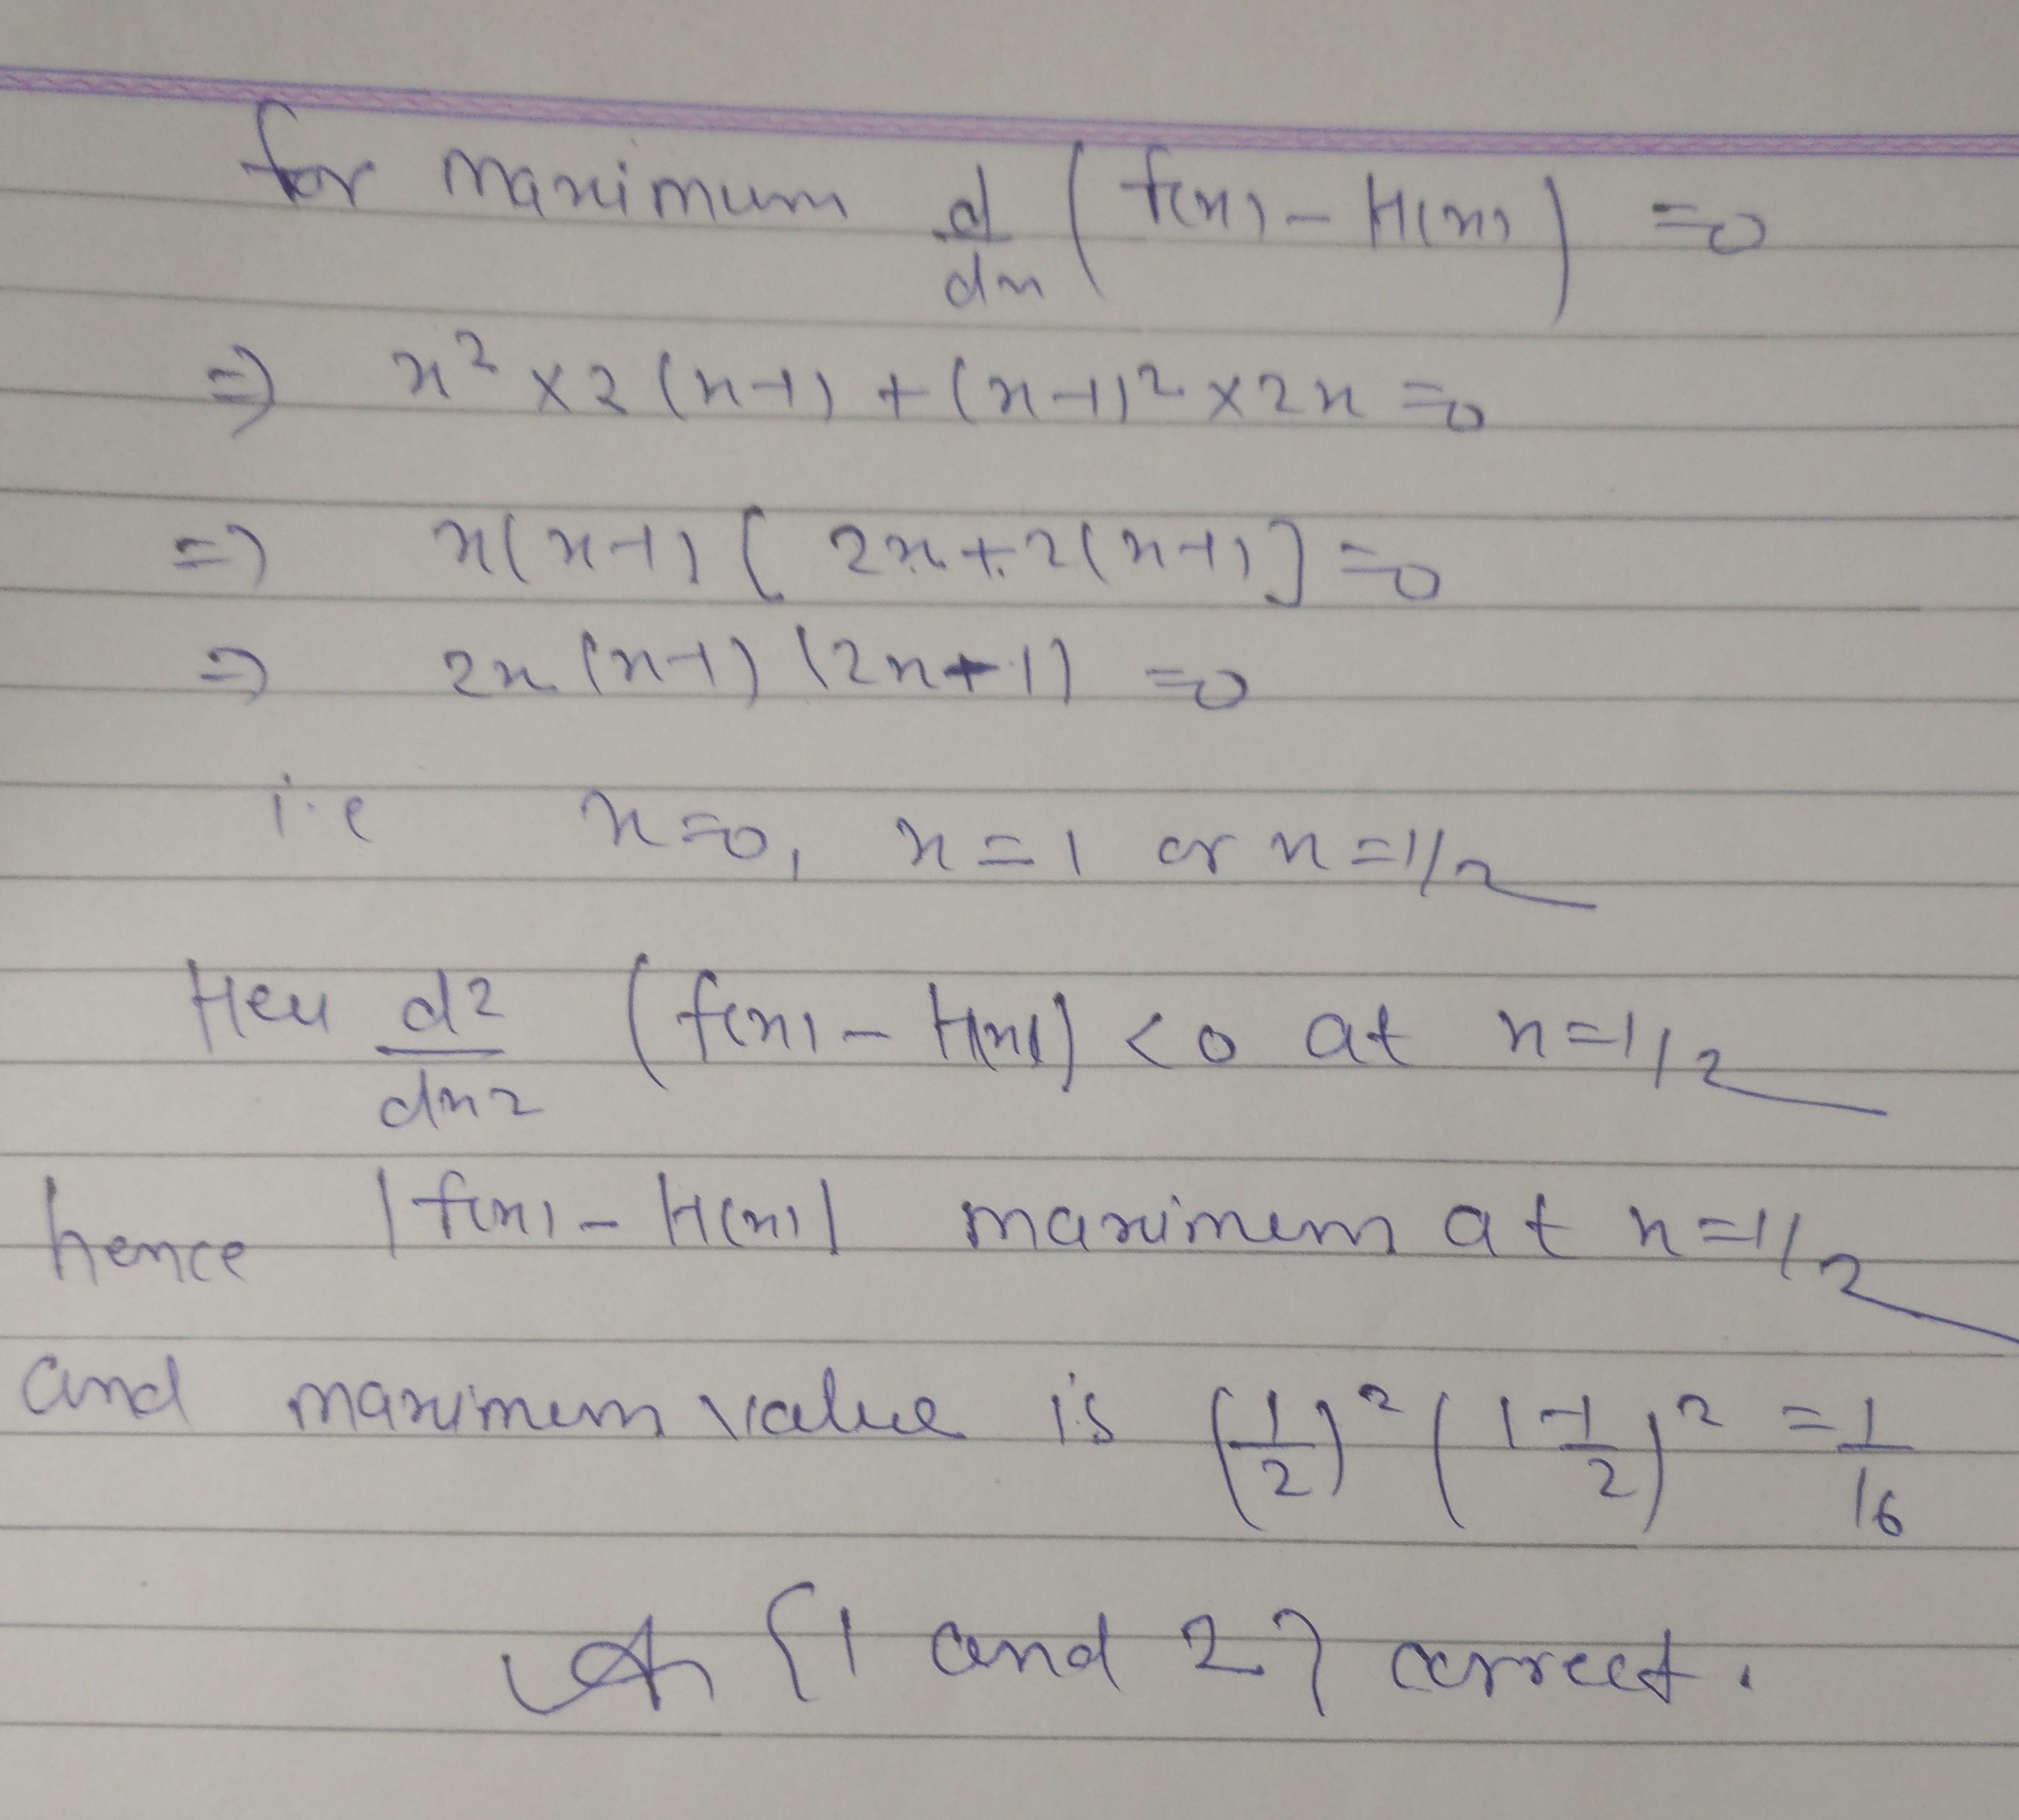 for maximum d/dx (f(x) - H(x)) = 0
⇒ x² × 2(x-1) + (x-1)² × 2x = 0
⇒ x(x-1) [ 2x + 2(x-1) ] = 0
⇒ 2x (x-1) (2x+1) = 0
i.e x=0, x=1 or x=1/2
Here d²/dx² (f(x) - H(x)) < 0 at x=1/2
hence |f(x) - H(x)| maximum at x=1/2
and maximum value is (1/2)² (1-1/2)² = 1/16
{1 and 2} correct.